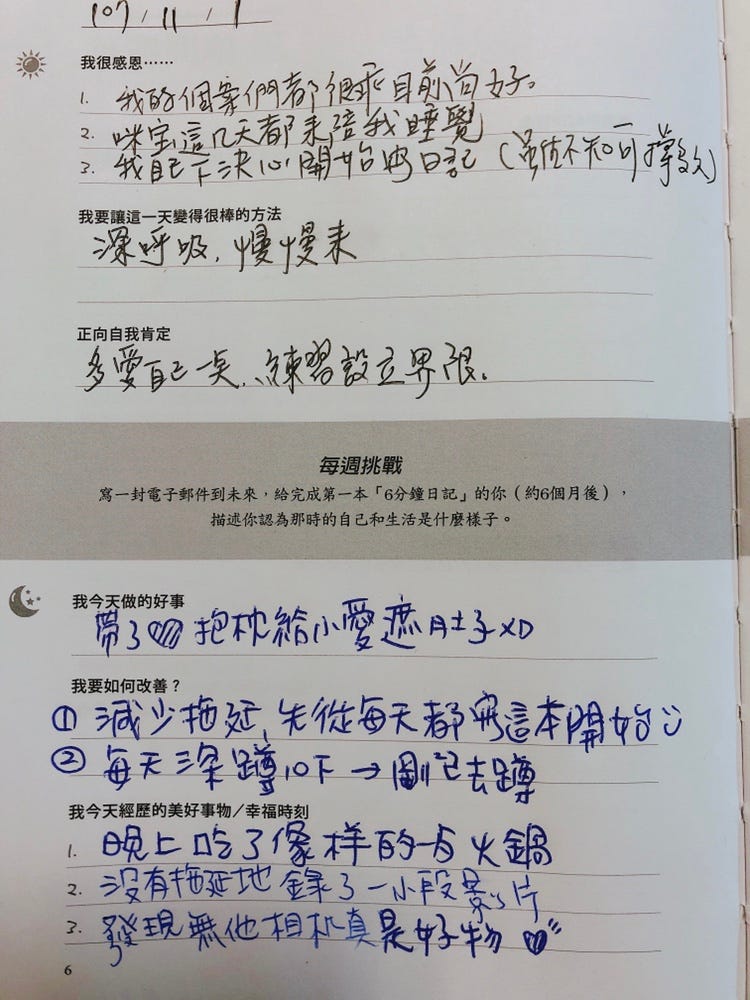 107/11/1
我很感恩……
1. 我的個案們都很乖目前尚好。
2. 咪寶這几天都來陪我睡覺
3. 我自己下決心開始寫日記(虽然不知可撐多久)
我要讓這一天變得很棒的方法
深呼吸,慢慢來
正向自我肯定
多愛自己一点、練習設立界限。
每週挑戰
寫一封電子郵件到未來,給完成第一本「6分鐘日記」的你(約6個月後),
描述你認為那時的自己和生活是什麼樣子。
我今天做的好事
帶了抱枕給小愛遮肚子XD
我要如何改善?
① 減少拖延,先從每天都寫這本開始
② 每天深蹲10下→剛已去蹲
我今天經歷的美好事物/幸福時刻
1. 晚上吃了像样的火鍋
2. 沒有拖延地錄了一小段影片
3. 發現無他相机真是好物
6